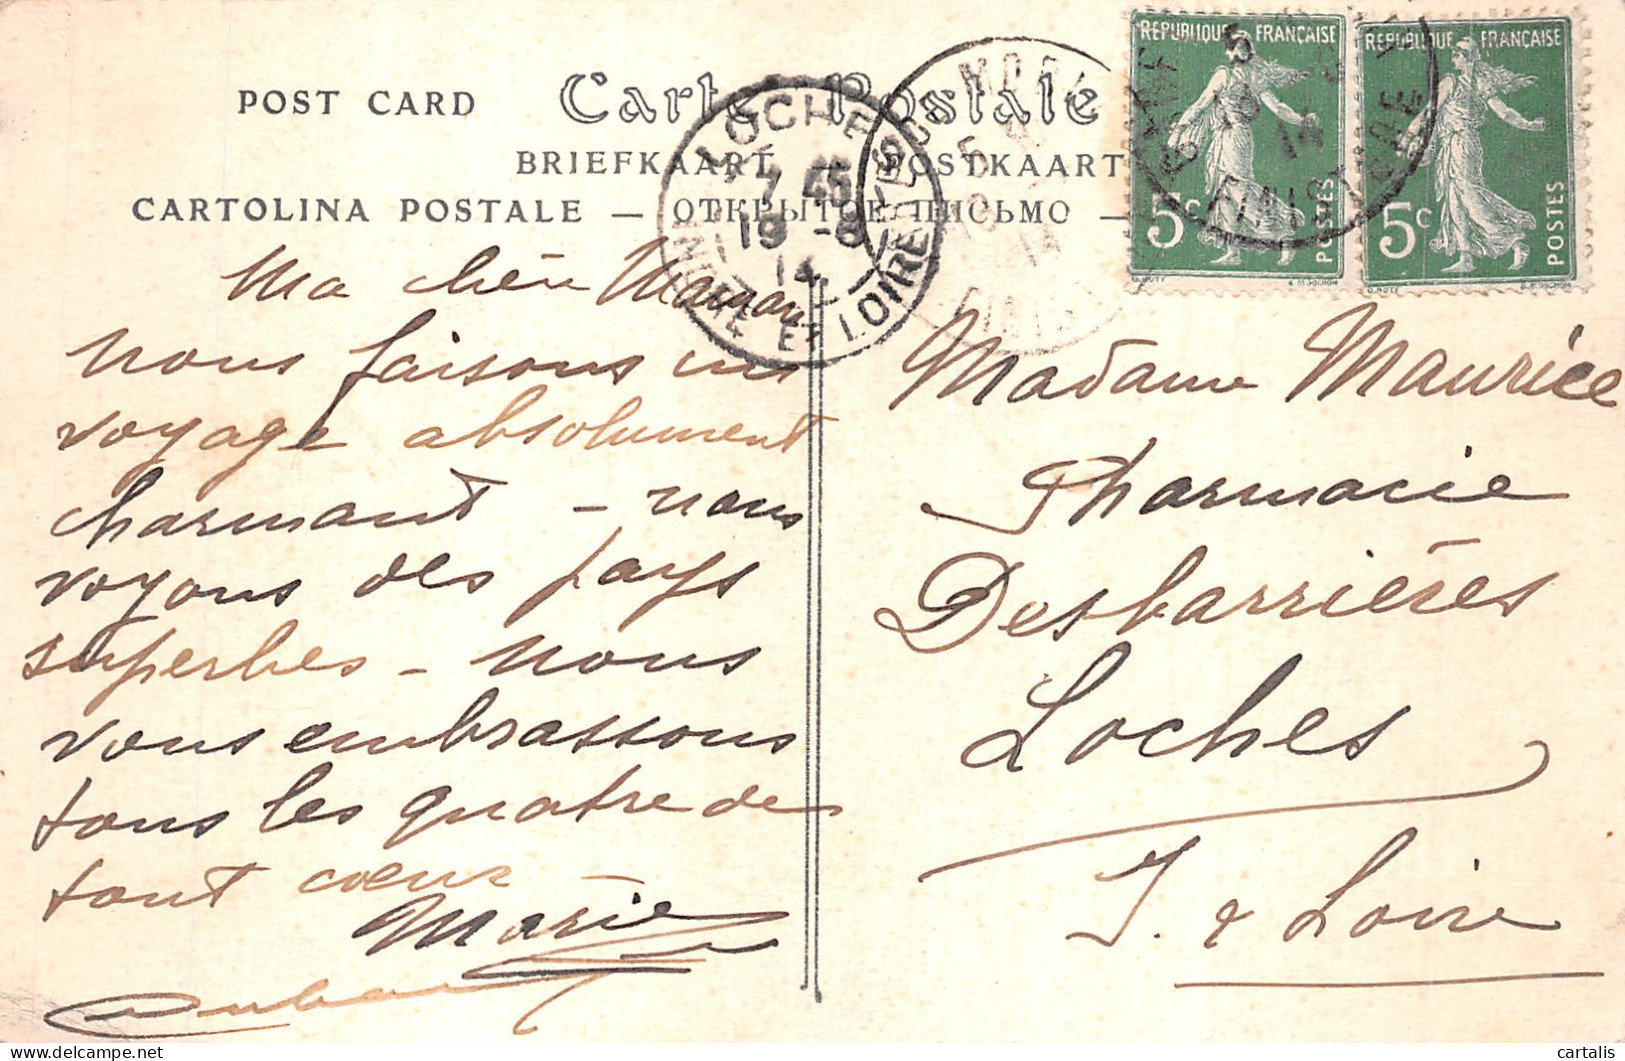 POST CARD
Carte Postale
BRIEFKAART — POSTKAART
CARTOLINA POSTALE — ОТКРЫТОЕ ПИСЬМО —
LOCHES
7 45
19 - 8
14
INDRE ET LOIRE
FINISTERE
REPUBLIQUE FRANÇAISE
5c
POSTES
REPUBLIQUE FRANÇAISE
5c
POSTES
Ma chère Maman
nous faisons un
voyage absolument
charmant – nous
voyons des pays
superbes – nous
vous embrassons
tous les quatre de
tout cœur
Marie
Madame Maurice
Pharmacie
Desbarrières
Loches
I. & Loire
cartalis
delcampe.net